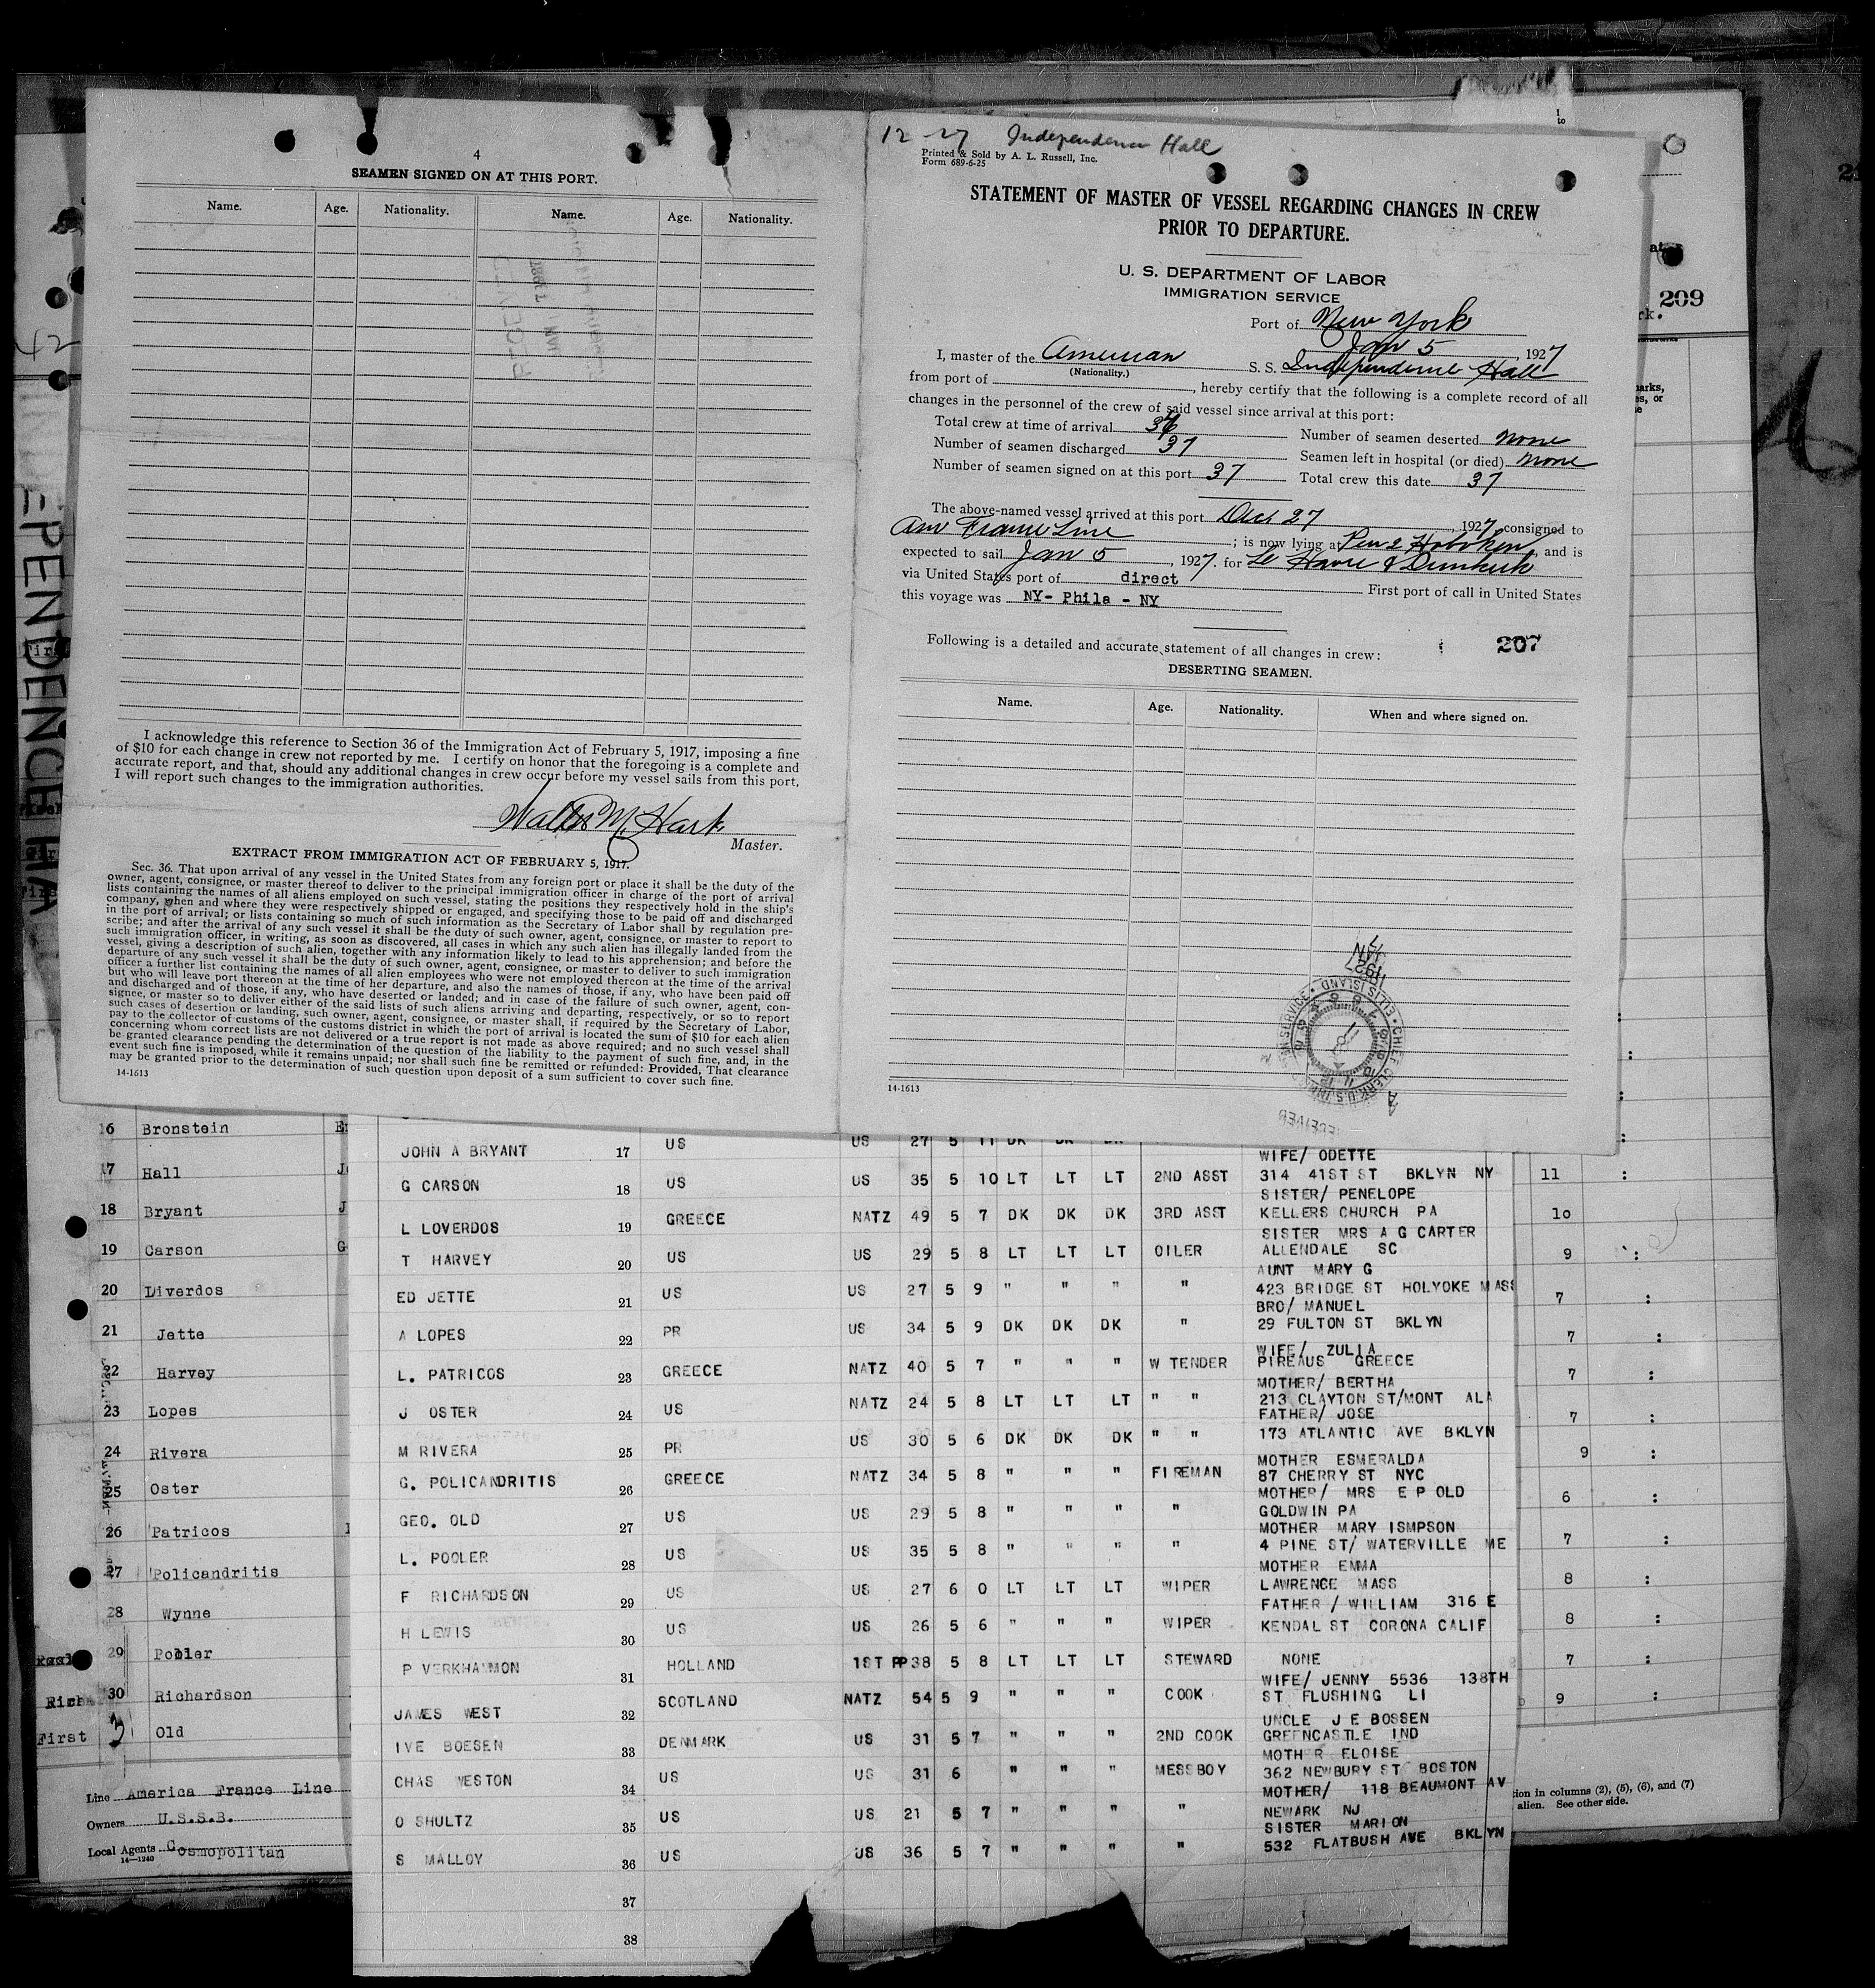 4
SEAMEN SIGNED ON AT THIS PORT.
Name. Age. Nationality. Name. Age. Nationality.
I acknowledge this reference to Section 36 of the Immigration Act of February 5, 1917, imposing a fine
of $10 for each change in crew not reported by me. I certify on honor that the foregoing is a complete and
accurate report, and that, should any additional changes in crew occur before my vessel sails from this port,
I will report such changes to the immigration authorities.
Walter M. Hart
Master.
EXTRACT FROM IMMIGRATION ACT OF FEBRUARY 5, 1917.
Sec. 36. That upon arrival of any vessel in the United States from any foreign port or place it shall be the duty of the
owner, agent, consignee, or master thereof to deliver to the principal immigration officer in charge of the port of arrival
lists containing the names of all aliens employed on such vessel, stating the positions they respectively hold in the ship's
company, when and where they were respectively shipped or engaged, and specifying those to be paid off and discharged
in the port of arrival; or lists containing so much of such information as the Secretary of Labor shall by regulation pre-
scribe; and after the arrival of any such vessel it shall be the duty of such owner, agent, consignee, or master to report to
such immigration officer, in writing, as soon as discovered, all cases in which any such alien has illegally landed from the
vessel, giving a description of such alien, together with any information likely to lead to his apprehension; and before the
departure of any such vessel it shall be the duty of such owner, agent, consignee, or master to deliver to such immigration
officer a further list containing the names of all alien employees who were not employed thereon at the time of the arrival
but who will leave port thereon at the time of her departure, and also the names of those, if any, who have been paid off
and discharged and of those, if any, who have deserted or landed; and in case of the failure of such owner, agent, con-
signee, or master so to deliver either of the said lists of such aliens arriving and departing, respectively, or so to report
such cases of desertion or landing, such owner, agent, consignee, or master shall, if required by the Secretary of Labor,
pay to the collector of customs of the customs district in which the port of arrival is located the sum of $10 for each alien
concerning whom correct lists are not delivered or a true report is not made as above required; and no such vessel shall
be granted clearance pending the determination of the question of the liability to the payment of such fine, and, in the
event such fine is imposed, while it remains unpaid; nor shall such fine be remitted or refunded: Provided, That clearance
may be granted prior to the determination of such question upon deposit of a sum sufficient to cover such fine.
14-1613
12-27 Independence Hall
Printed & Sold by A. L. Russell, Inc.
Form 689-6-25
STATEMENT OF MASTER OF VESSEL REGARDING CHANGES IN CREW
PRIOR TO DEPARTURE.
U. S. DEPARTMENT OF LABOR
IMMIGRATION SERVICE
Port of New York
Jan 5, 1927
I, master of the American S. S. Independence Hall
(Nationality.)
from port of , hereby certify that the following is a complete record of all
changes in the personnel of the crew of said vessel since arrival at this port:
Total crew at time of arrival 36 Number of seamen deserted none
Number of seamen discharged 37 Seamen left in hospital (or died) none
Number of seamen signed on at this port 37 Total crew this date 37
The above-named vessel arrived at this port Dec 27, 1927, consigned to
Am France Line ; is now lying at Pier 2 Hoboken, and is
expected to sail Jan 5, 1927. for Le Havre & Dunkirk
via United States port of direct First port of call in United States
this voyage was NY- Phila - NY
Following is a detailed and accurate statement of all changes in crew: 207
DESERTING SEAMEN.
Name. Age. Nationality. When and where signed on.
JAN 1927
CHIEF CLERK, U.S. IMMIGRATION SERVICE ELLIS ISLAND
RECEIVED
14-1613
209
INDEPENDENCE HA
16 Bronstein
17 Hall
18 Bryant
19 Carson
20 Liverdos
21 Jette
22 Harvey
23 Lopes
24 Rivera
25 Oster
26 Patricos
27 Policandritis
28 Wynne
29 Pooler
30 Richardson
First 3 Old
Line America France Line
Owners U.S.S.B.
Local Agents Cosmopolitan
14-1240
JOHN A BRYANT 17 US US 27 5 11 DK
WIFE/ ODETTE
G CARSON 18 US US 35 5 10 LT LT LT 2ND ASST 314 41ST ST BKLYN NY 11
SISTER/ PENELOPE
L LOVERDOS 19 GREECE NATZ 49 5 7 DK DK DK 3RD ASST KELLERS CHURCH PA 10
SISTER MRS A G CARTER
T HARVEY 20 US US 29 5 8 LT LT LT OILER ALLENDALE SC 9
AUNT MARY G
ED JETTE 21 US US 27 5 9 " " " " 423 BRIDGE ST HOLYOKE MASS 7
BRO/ MANUEL
A LOPES 22 PR US 34 5 9 DK DK DK " 29 FULTON ST BKLYN 7
WIFE/ ZULIA
L. PATRICOS 23 GREECE NATZ 40 5 7 " " " W TENDER PIREAUS GREECE 7
MOTHER/ BERTHA
J OSTER 24 US NATZ 24 5 8 LT LT LT " " 213 CLAYTON ST/MONT ALA 7
FATHER/ JOSE
M RIVERA 25 PR US 30 5 6 DK DK DK " " 173 ATLANTIC AVE BKLYN 9
MOTHER ESMERALDA
G. POLICANDRITIS 26 GREECE NATZ 34 5 8 " " " FIREMAN 87 CHERRY ST NYC 6
MOTHER/ MRS E P OLD
GEO. OLD 27 US US 29 5 8 " " " " GOLDWIN PA
MOTHER MARY ISMPSON
L. POOLER 28 US US 35 5 8 " " " " 4 PINE ST/ WATERVILLE ME 7
MOTHER EMMA
F RICHARDSON 29 US US 27 6 0 LT LT LT WIPER LAWRENCE MASS 8
FATHER / WILLIAM 316 E
H LEWIS 30 US US 26 5 6 " " " WIPER KENDAL ST CORONA CALIF 8
P VERKHAMMON 31 HOLLAND 1ST PP 38 5 8 LT LT LT STEWARD NONE 7
WIFE/ JENNY 5536 138TH
JAMES WEST 32 SCOTLAND NATZ 54 5 9 " " " COOK ST FLUSHING LI 9
UNCLE J E BOSSEN
IVE BOESEN 33 DENMARK US 31 5 7 " " " 2ND COOK GREENCASTLE IND
MOTHER ELOISE
CHAS WESTON 34 US US 31 6 " " " MESSBOY 362 NEWBURY ST BOSTON
MOTHER/ 118 BEAUMONT AV
O SHULTZ 35 US US 21 5 7 " " " " NEWARK NJ
SISTER MARION
S MALLOY 36 US US 36 5 7 " " " " 532 FLATBUSH AVE BKLYN
37
38
tion in columns (2), (5), (6), and (7)
alien. See other side.